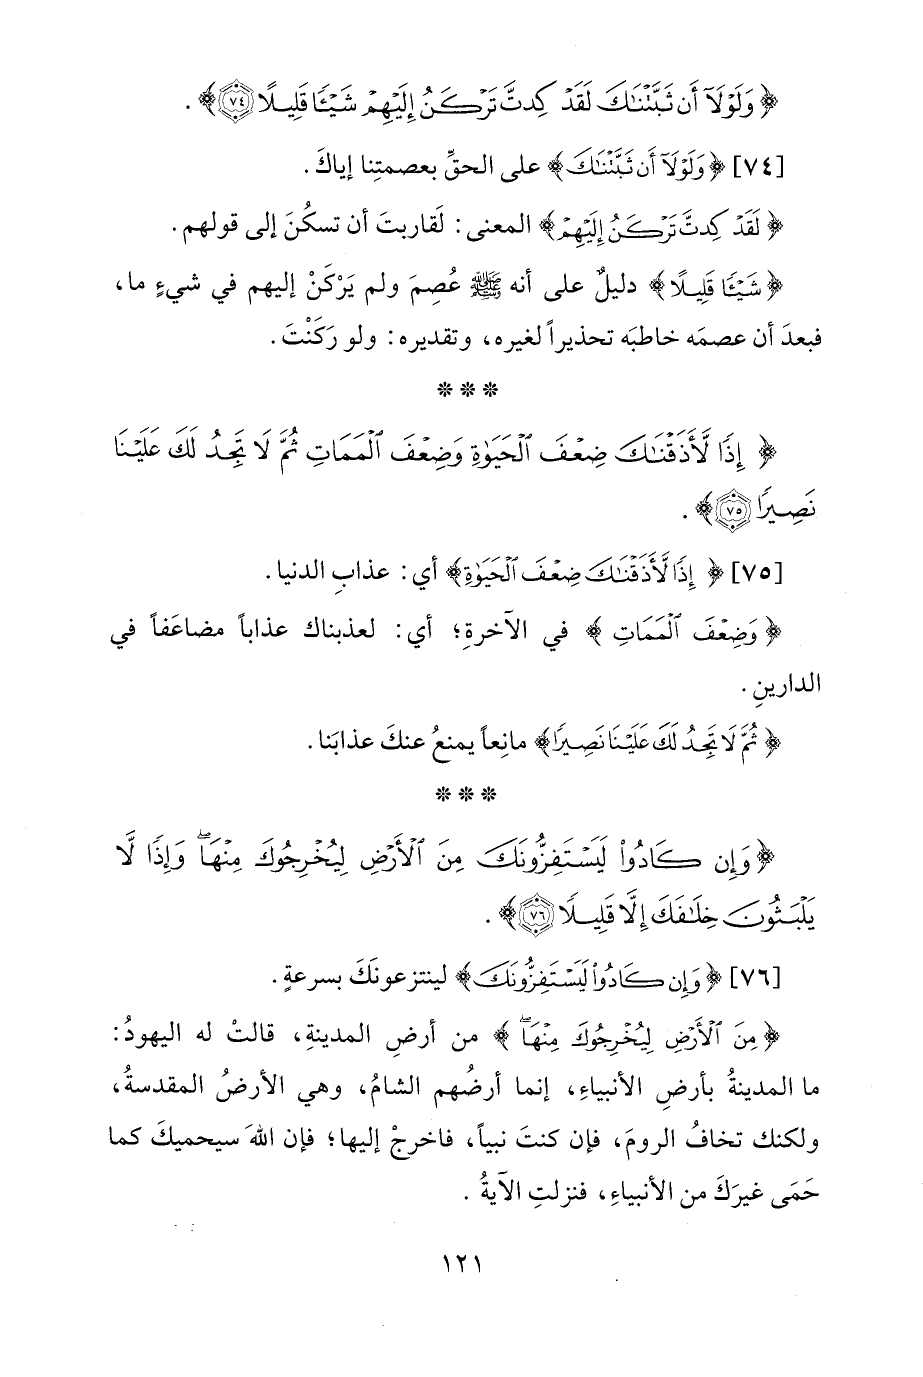 ﴿وَلَوْلَآ أَن ثَبَّتْنَٰكَ لَقَدْ كِدتَّ تَرْكَنُ إِلَيْهِمْ شَيْـًٔا قَلِيلًا ٧٤﴾ .
[٧٤] ﴿وَلَوْلَآ أَن ثَبَّتْنَٰكَ﴾ على الحقِّ بعصمتِنا إياكَ .
﴿لَقَدْ كِدتَّ تَرْكَنُ إِلَيْهِمْ﴾ المعنى: لَقاربتَ أن تسكُنَ إلى قولهم.
﴿شَيْـًٔا قَلِيلًا﴾ دليلٌ على أنه ﷺ عُصِمَ ولم يَرْكَنْ إليهم في شيءٍ ما،
فبعدَ أن عصمَه خاطبَه تحذيراً لغيره، وتقديره: ولو رَكَنْتَ.
* * *
﴿إِذًا لَّأَذَقْنَٰكَ ضِعْفَ ٱلْحَيَوٰةِ وَضِعْفَ ٱلْمَمَاتِ ثُمَّ لَا تَجِدُ لَكَ عَلَيْنَا
نَصِيرًا ٧٥﴾ .
[٧٥] ﴿إِذًا لَّأَذَقْنَٰكَ ضِعْفَ ٱلْحَيَوٰةِ﴾ أي: عذابِ الدنيا.
﴿وَضِعْفَ ٱلْمَمَاتِ﴾ في الآخرةِ؛ أي: لعذبناك عذاباً مضاعَفاً في
الدارينِ.
﴿ثُمَّ لَا تَجِدُ لَكَ عَلَيْنَا نَصِيرًا﴾ مانِعاً يمنعُ عنكَ عذابَنا.
* * *
﴿وَإِن كَادُوا۟ لَيَسْتَفِزُّونَكَ مِنَ ٱلْأَرْضِ لِيُخْرِجُوكَ مِنْهَا ۖ وَإِذًا لَّا
يَلْبَثُونَ خِلَٰفَكَ إِلَّا قَلِيلًا ٧٦﴾ .
[٧٦] ﴿وَإِن كَادُوا۟ لَيَسْتَفِزُّونَكَ﴾ لينتزعونَكَ بسرعةٍ.
﴿مِنَ ٱلْأَرْضِ لِيُخْرِجُوكَ مِنْهَا ۖ﴾ من أرضِ المدينةِ، قالتْ له اليهودُ:
ما المدينةُ بأرضِ الأنبياءِ، إنما أرضُهم الشامُ، وهي الأرضُ المقدسةُ،
ولكنك تخافُ الرومَ، فإن كنتَ نبياً، فاخرجْ إليها؛ فإن اللهَ سيحميكَ كما
حَمَى غيرَكَ من الأنبياءِ، فنزلتِ الآيةُ .
١٢١